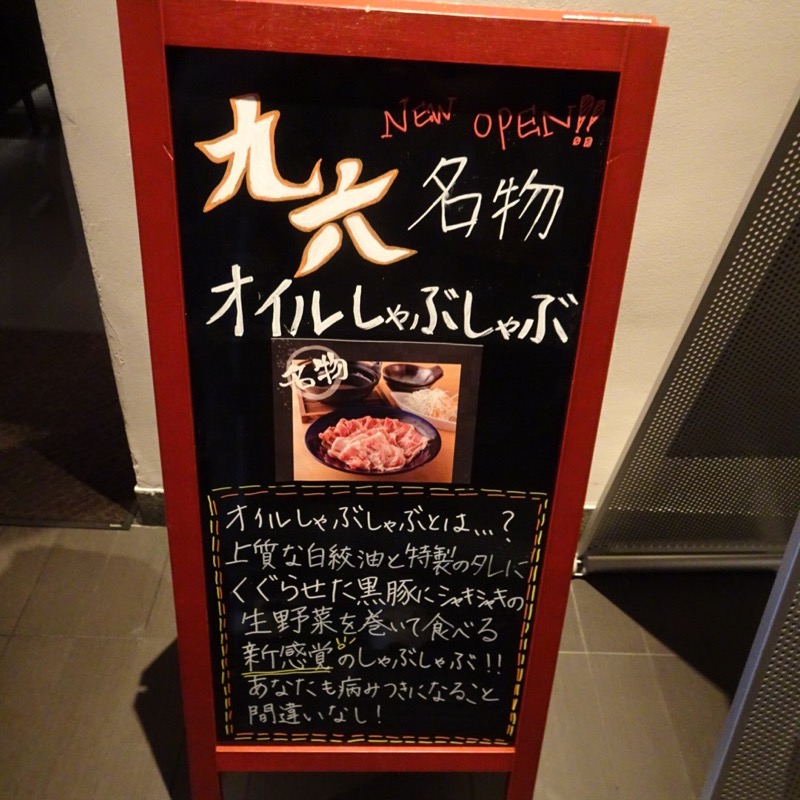 NEW OPEN!!
九六 名物
オイルしゃぶしゃぶ
名物
オイルしゃぶしゃぶとは...?
上質な白絞油と特製のタレに
くぐらせた黒豚にシャキシャキの
生野菜を巻いて食べる
新感覚のしゃぶしゃぶ!!
あなたも病みつきになること
間違いなし!